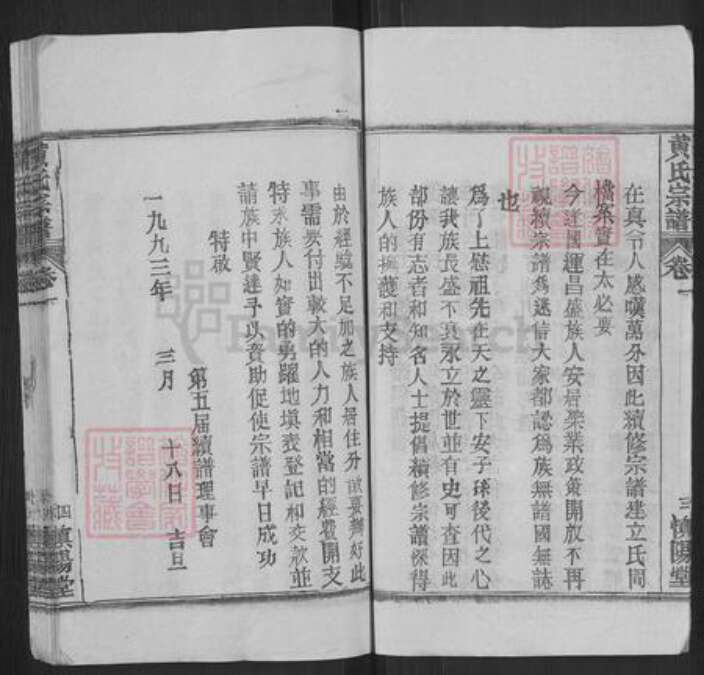 黄氏宗譜
卷一
三
慎陽堂
在真令人感嘆萬分因此續修宗譜建立氏間
檔案實在太必要
今逢國運昌盛族人安居樂業政策開放不再
視續宗譜為迷信大家都認為族無譜國無誌
也
為了上慰祖先在天之靈下安子孫後代之心
讓我族長盛不衰永立於世並有史可查因此
部份有志者和知名人士提倡續修宗譜深得
族人的擁護和支持
由於經驗不足加之族人居住分散要辦好此
事需要付出較大的人力和相當的經費開支
特求族人如實的勇躍地填表登記和交款並
請族中賢達予以資助促使宗譜早日成功
特啟
第五屆續譜理事會
一九九三年 三月 十八日 吉旦
黄氏宗譜
卷一
四
慎陽堂
FamilySearch